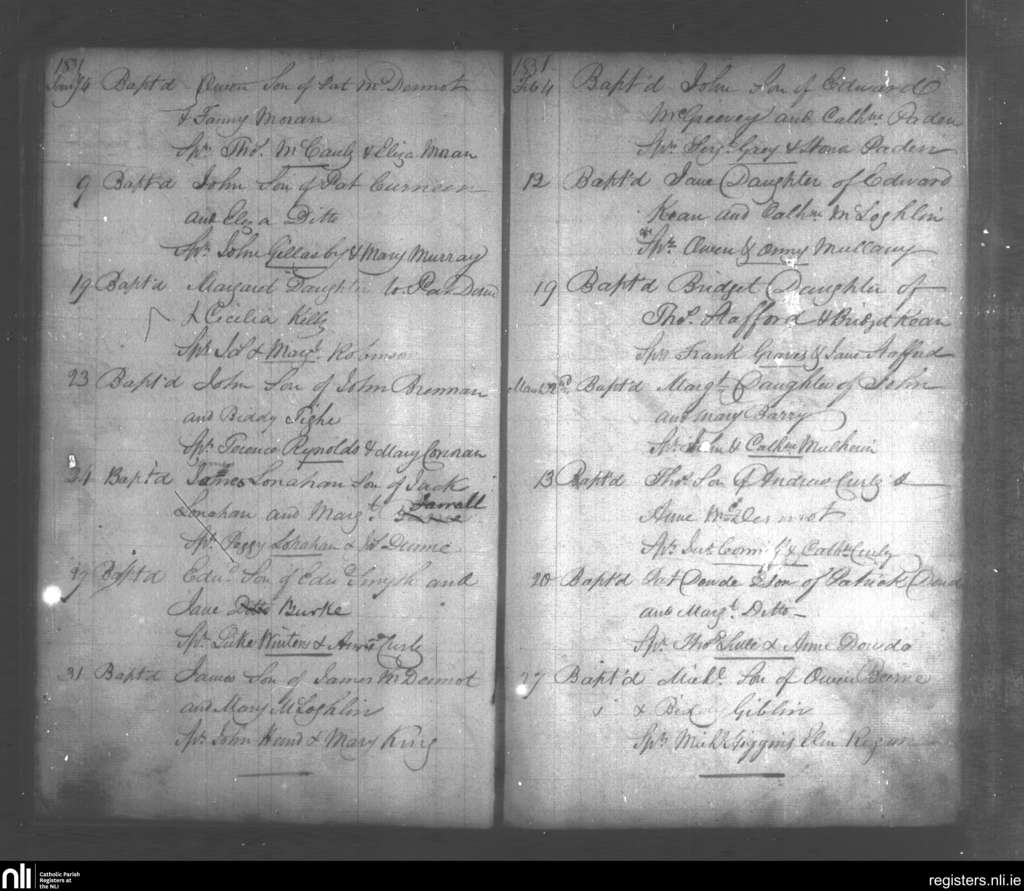 1831
Jany 4 Bapt'd Owen Son of Pat McDermot
& Fanny Moran
Sprs Thos. McCauly & Eliza Moran
9 Bapt'd John Son of Pat Curneen
and Eliza Ditto
Sprs John Gillasby & Mary Murray
19 Bapt'd Margaret Daughter to Pat
& Cicilia Kelly
Sprs Jas & Margt. Robinson
23 Bapt'd John Son of John Brennan
and Biddy Tighe
Sprs Terence Reynolds & Mary Corcoran
24 Bapt'd James Lonahan Son of Jack
Lonahan and Margt. Farrell
Sprs Peggy Lonahan &
27 Bapt'd Edwd Son of Edwd Smyth and
Jane Ditto Burke
Sprs Luke Winters & Anne Curly
31 Bapt'd James Son of James McDermot
and Mary McLoghlin
Sprs John Hand & Mary King
1831
Feb 4 Bapt'd John Son of Edward
McGreevey and Cathne Paden
Sprs Gray & Hona Paden
12 Bapt'd Jane Daughter of Edward
Koan and Cathne McLoghlin
Sprs Owen & Onny Mullany
19 Bapt'd Bridget Daughter of
Thos. Stafford & Bridgt Koan
Sprs Frank Graves & Jane Stafford
Bapt'd Margt. Daughter of John
and Mary Barry
Sprs John & Cathne Mulhern
13 Bapt'd Thos Son of Andrew Curly &
Anne McDermot
Sprs & Cathe Curly
20 Bapt'd Pat Dowda Son of Patrick Dowd
and Margt. Ditto
Sprs Thos & Anne Dowda
27 Bapt'd Michl. Son of Owen Beirne
& Biddy Giblin
Sprs Michl Higgins Elen Regan
nli
Catholic Parish
Registers at
the NLI
registers.nli.ie